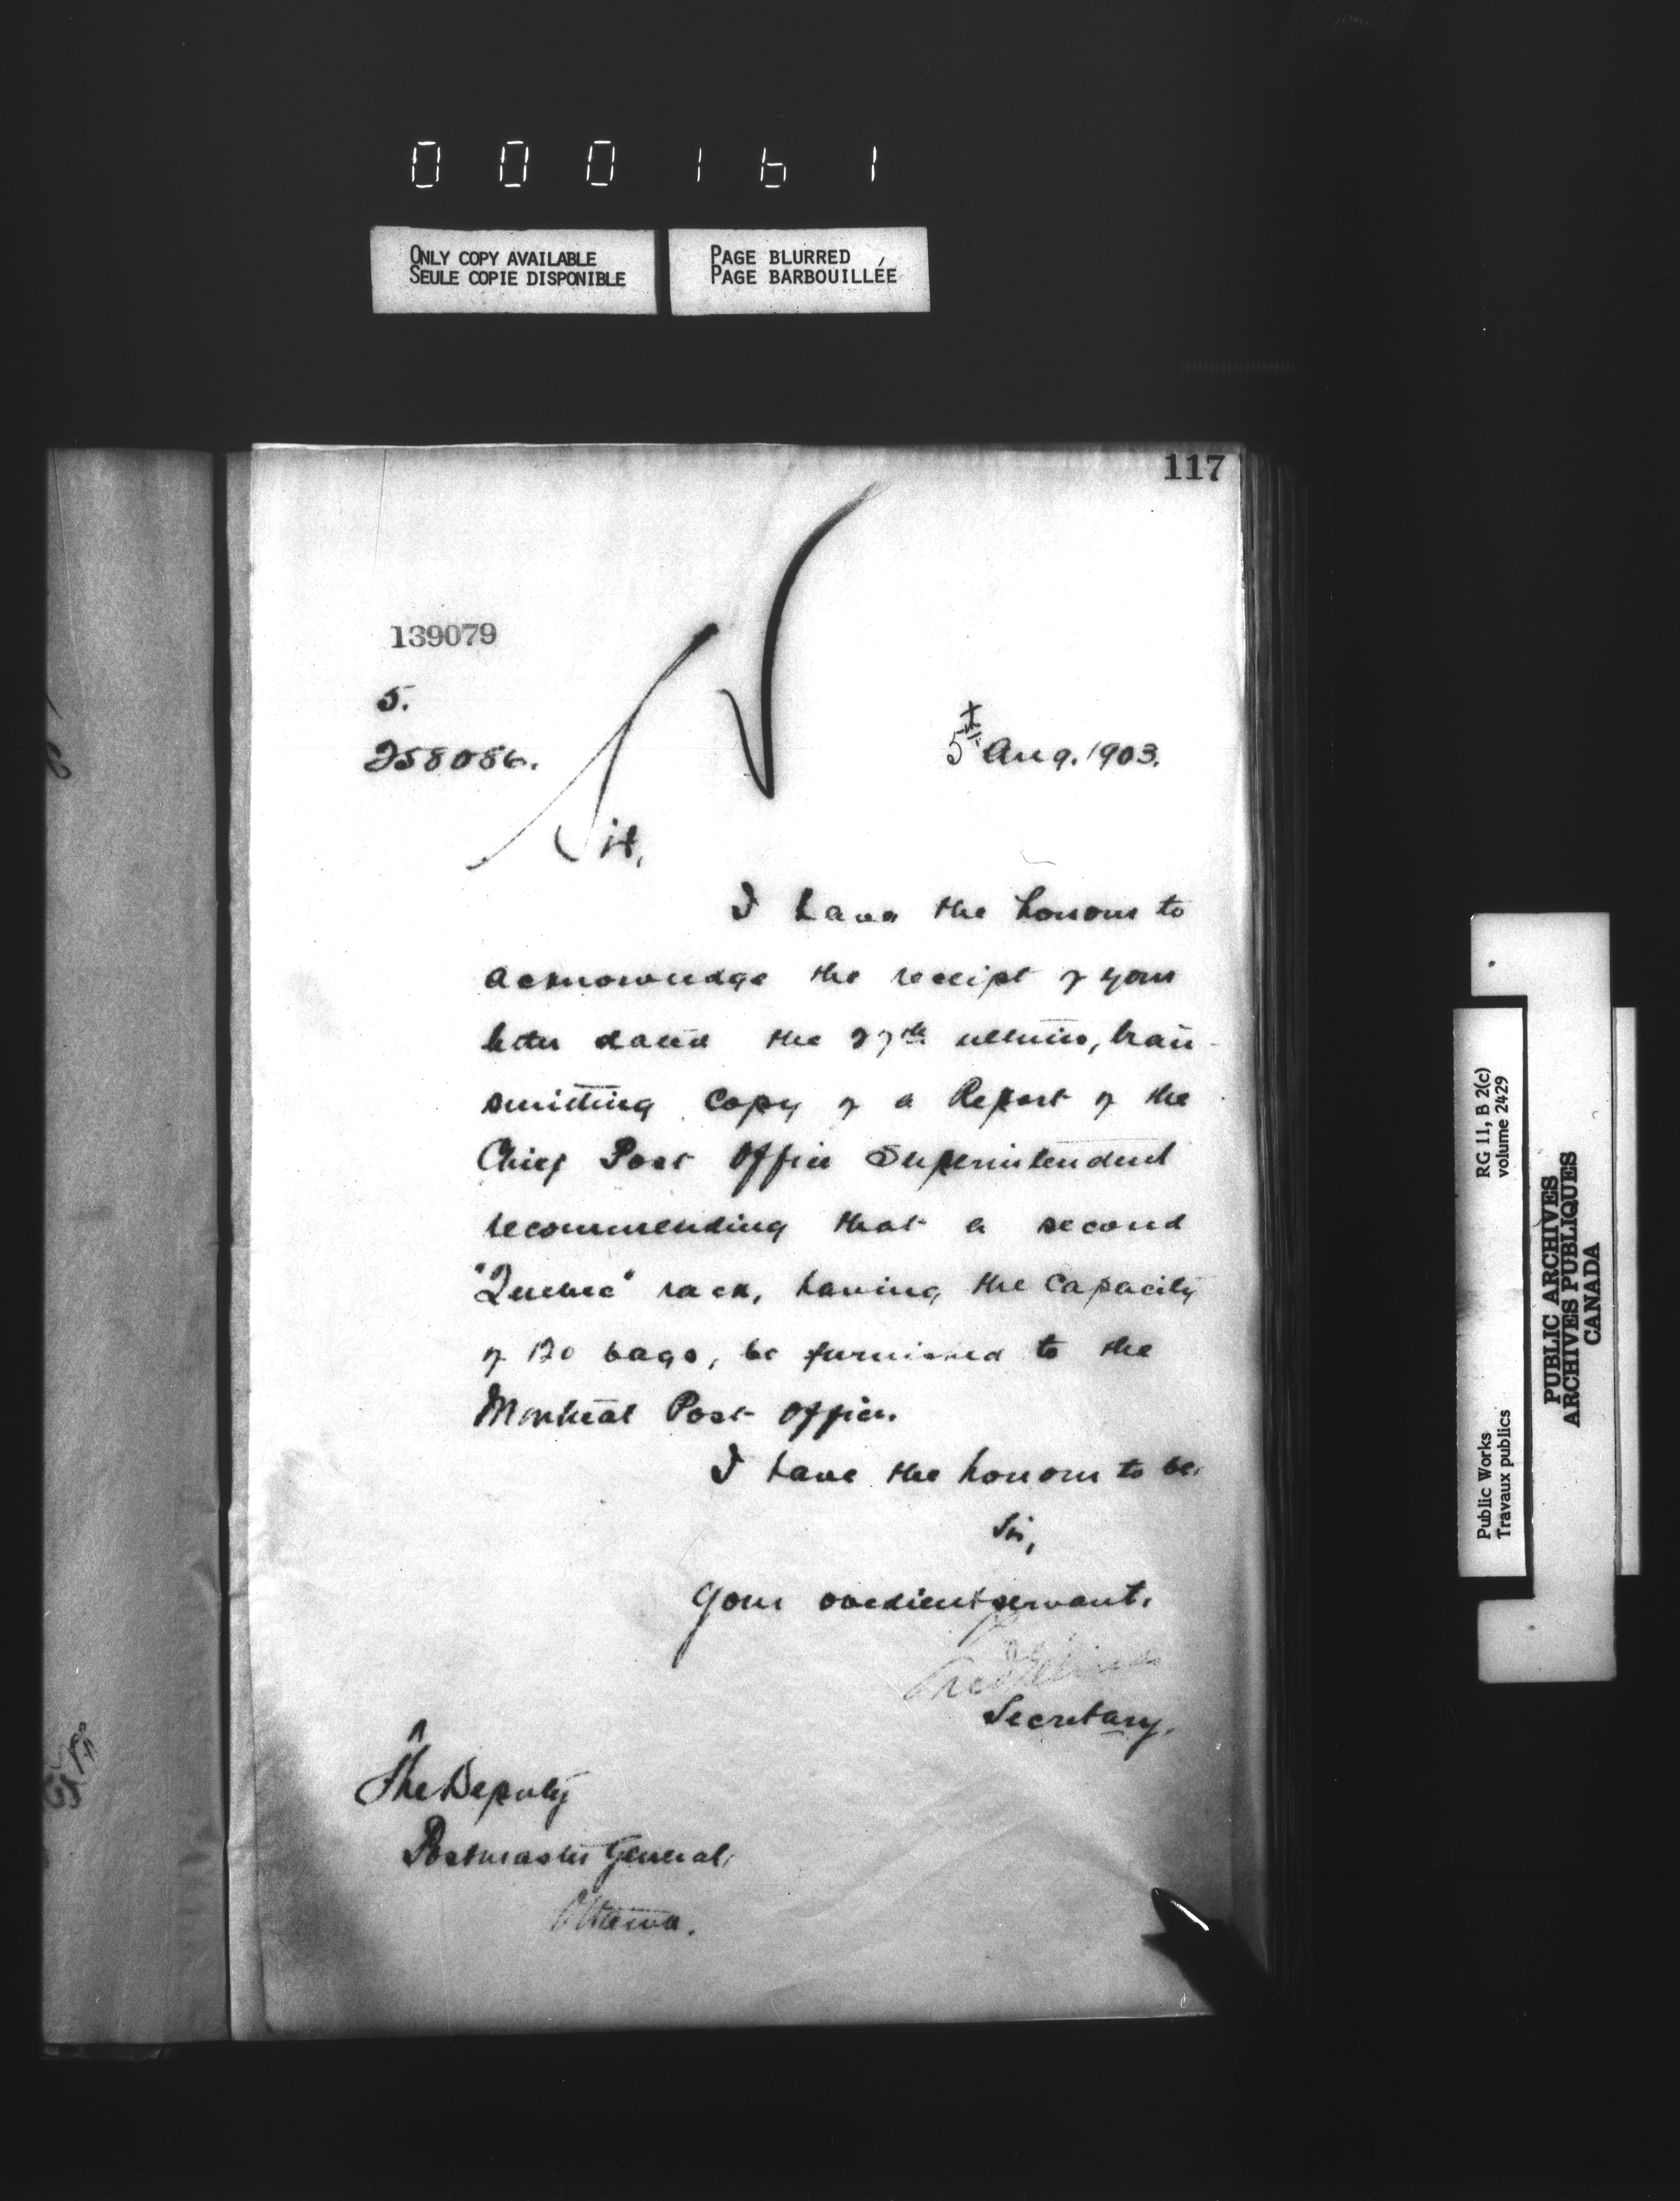 000161
ONLY COPY AVAILABLE
SEULE COPIE DISPONIBLE
PAGE BLURRED
PAGE BARBOUILLÉE
117
139079
5.
258086.
5th Aug. 1903.
Sir,
I have the honour to
acknowledge the receipt of your
letter dated the 27th ultimo, tran-
smitting copy of a Report of the
Chief Post Office Superintendent
recommending that a second
"Quebec" rack, having the capacity
of 120 bags, be furnished to the
Montreal Post Office.
I have the honour to be,
Sir,
Your obedient servant,
Secretary.
The Deputy
Postmaster General,
Ottawa.
Public Works
Travaux publics
RG 11, B 2(c)
volume 2429
PUBLIC ARCHIVES
ARCHIVES PUBLIQUES
CANADA